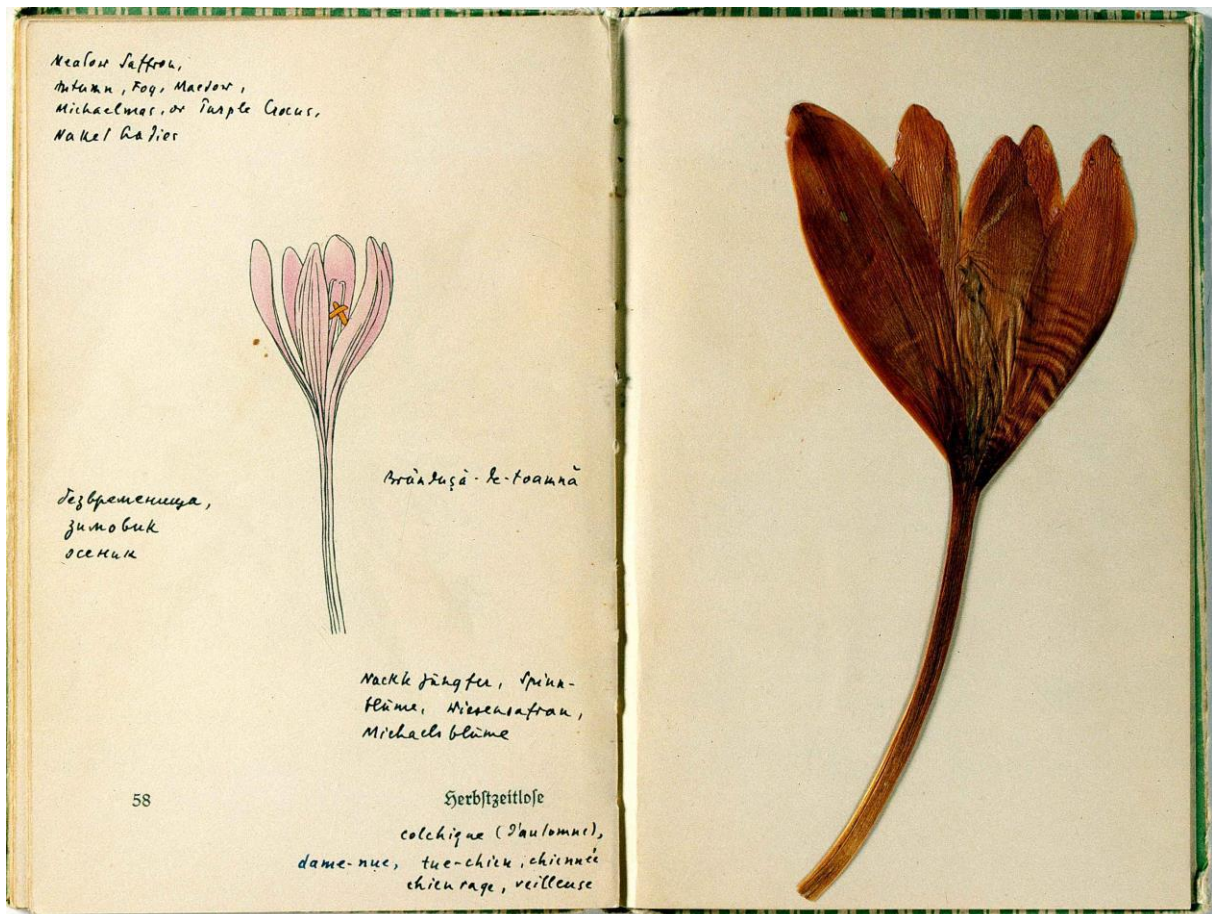 Meadow Saffron,
Autumn, Fog, Maedow,
Michaelmas, or Purple Crocus,
Naked Ladies
Brândușă-de-toamnă
безвременница,
зимовик
осеник
Nackte Jungfer, Spinn-
blume, Wiesensafran,
Michaelsblume
58
Herbstzeitlose
colchique (d'automne),
dame-nue, tue-chien, chiennée
chien rage, veilleuse